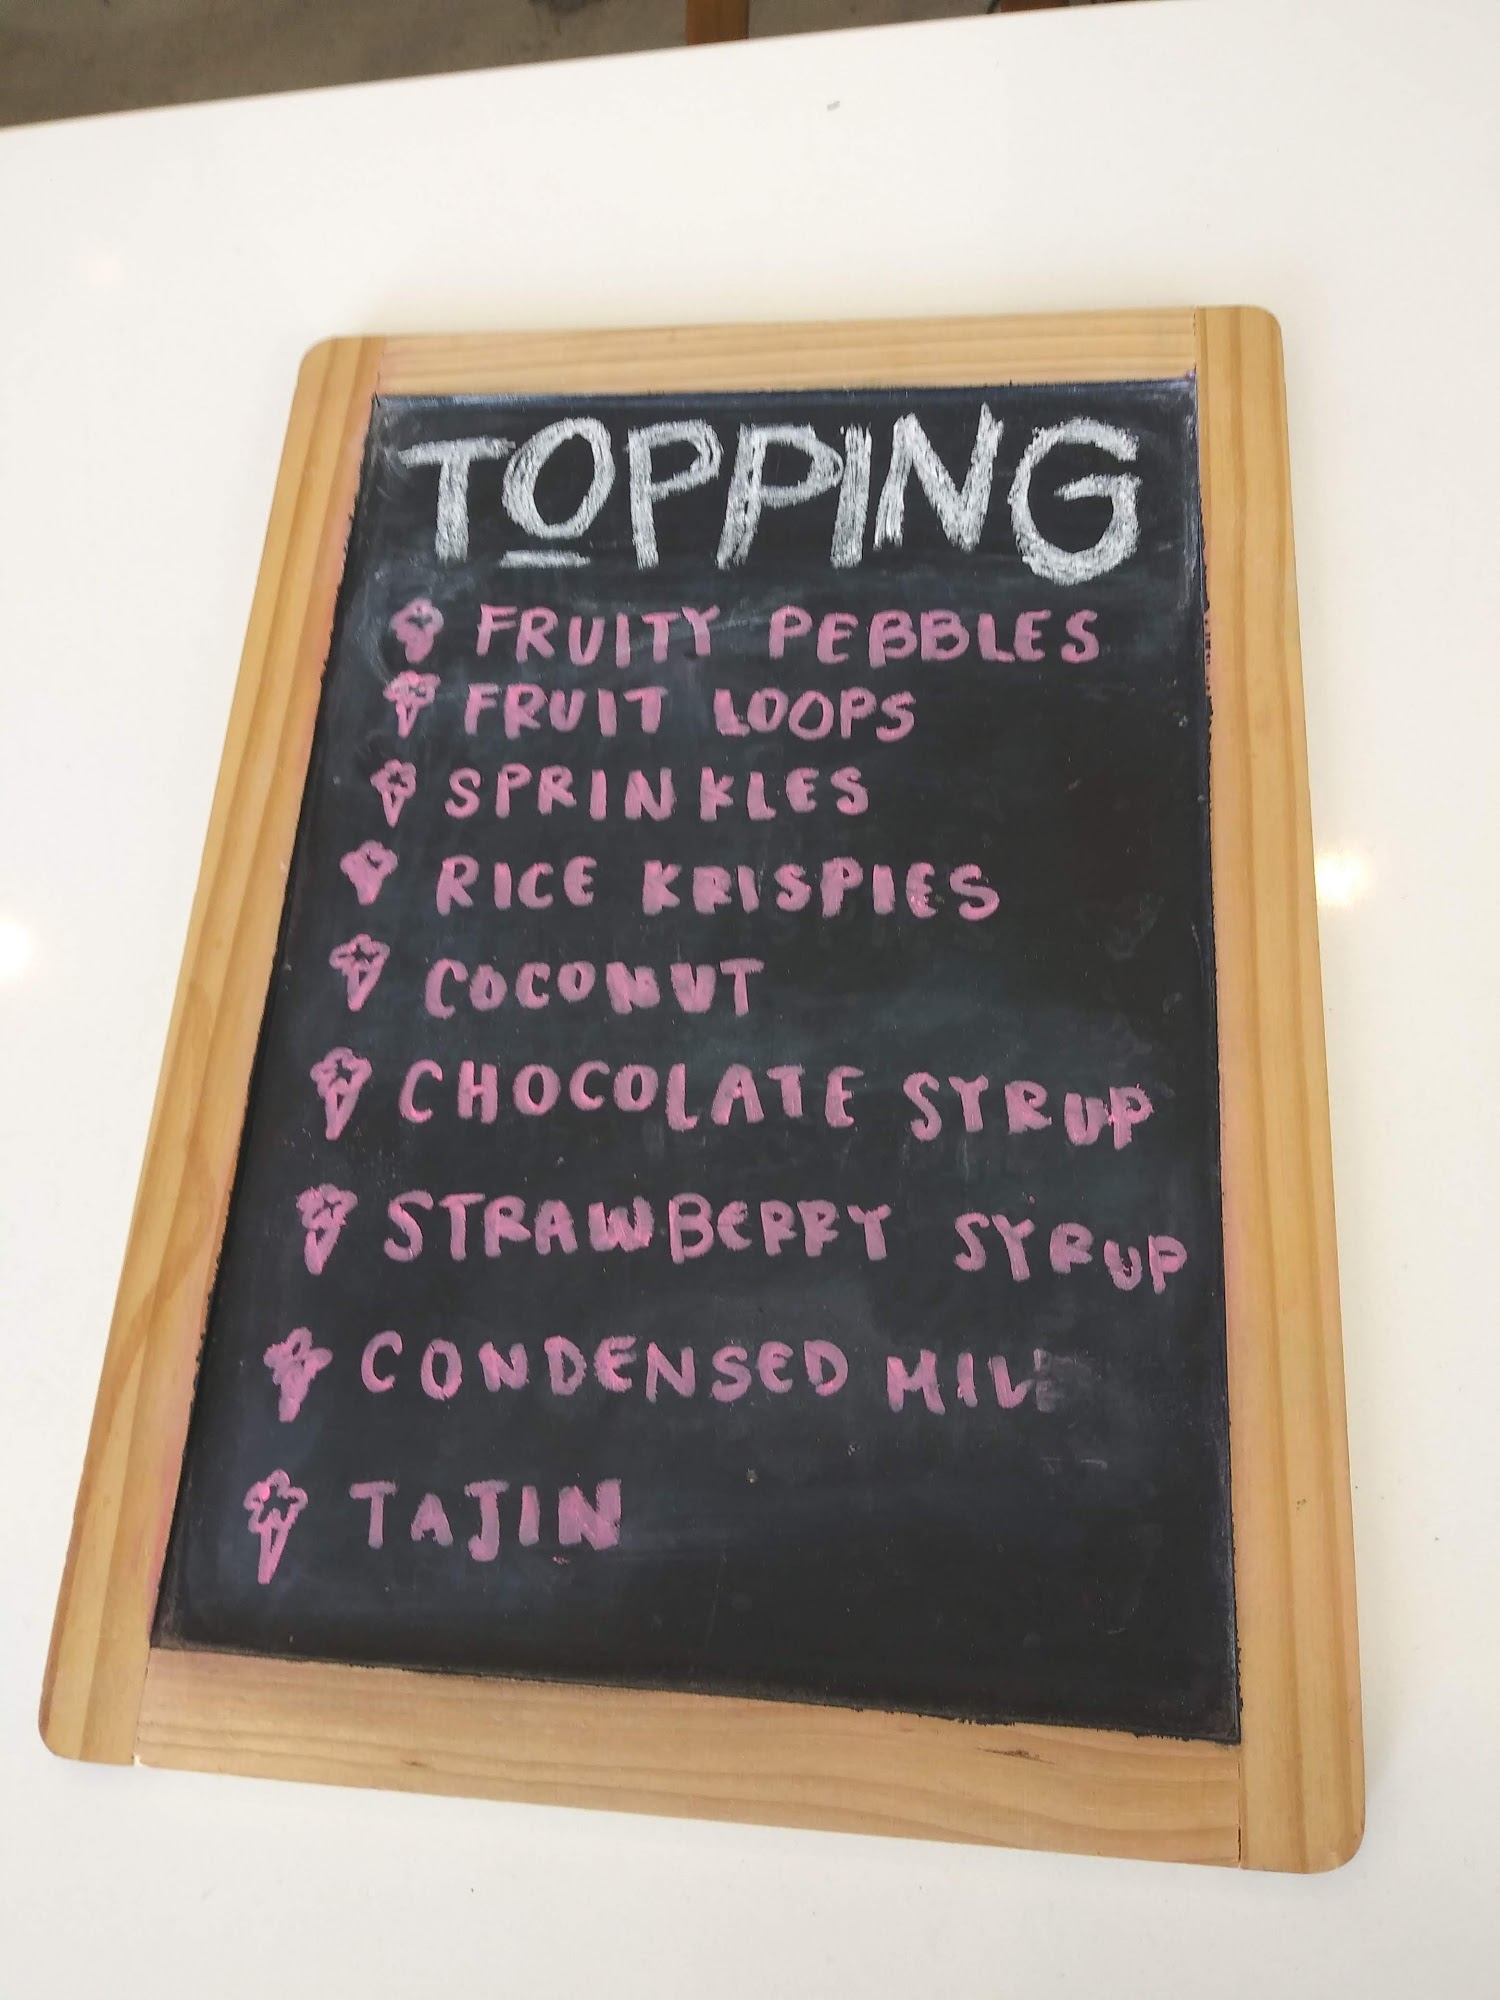 TOPPING
FRUITY PEBBLES
FRUIT LOOPS
SPRINKLES
RICE KRISPIES
COCONUT
CHOCOLATE SYRUP
STRAWBERRY SYRUP
CONDENSED MILK
TAJIN